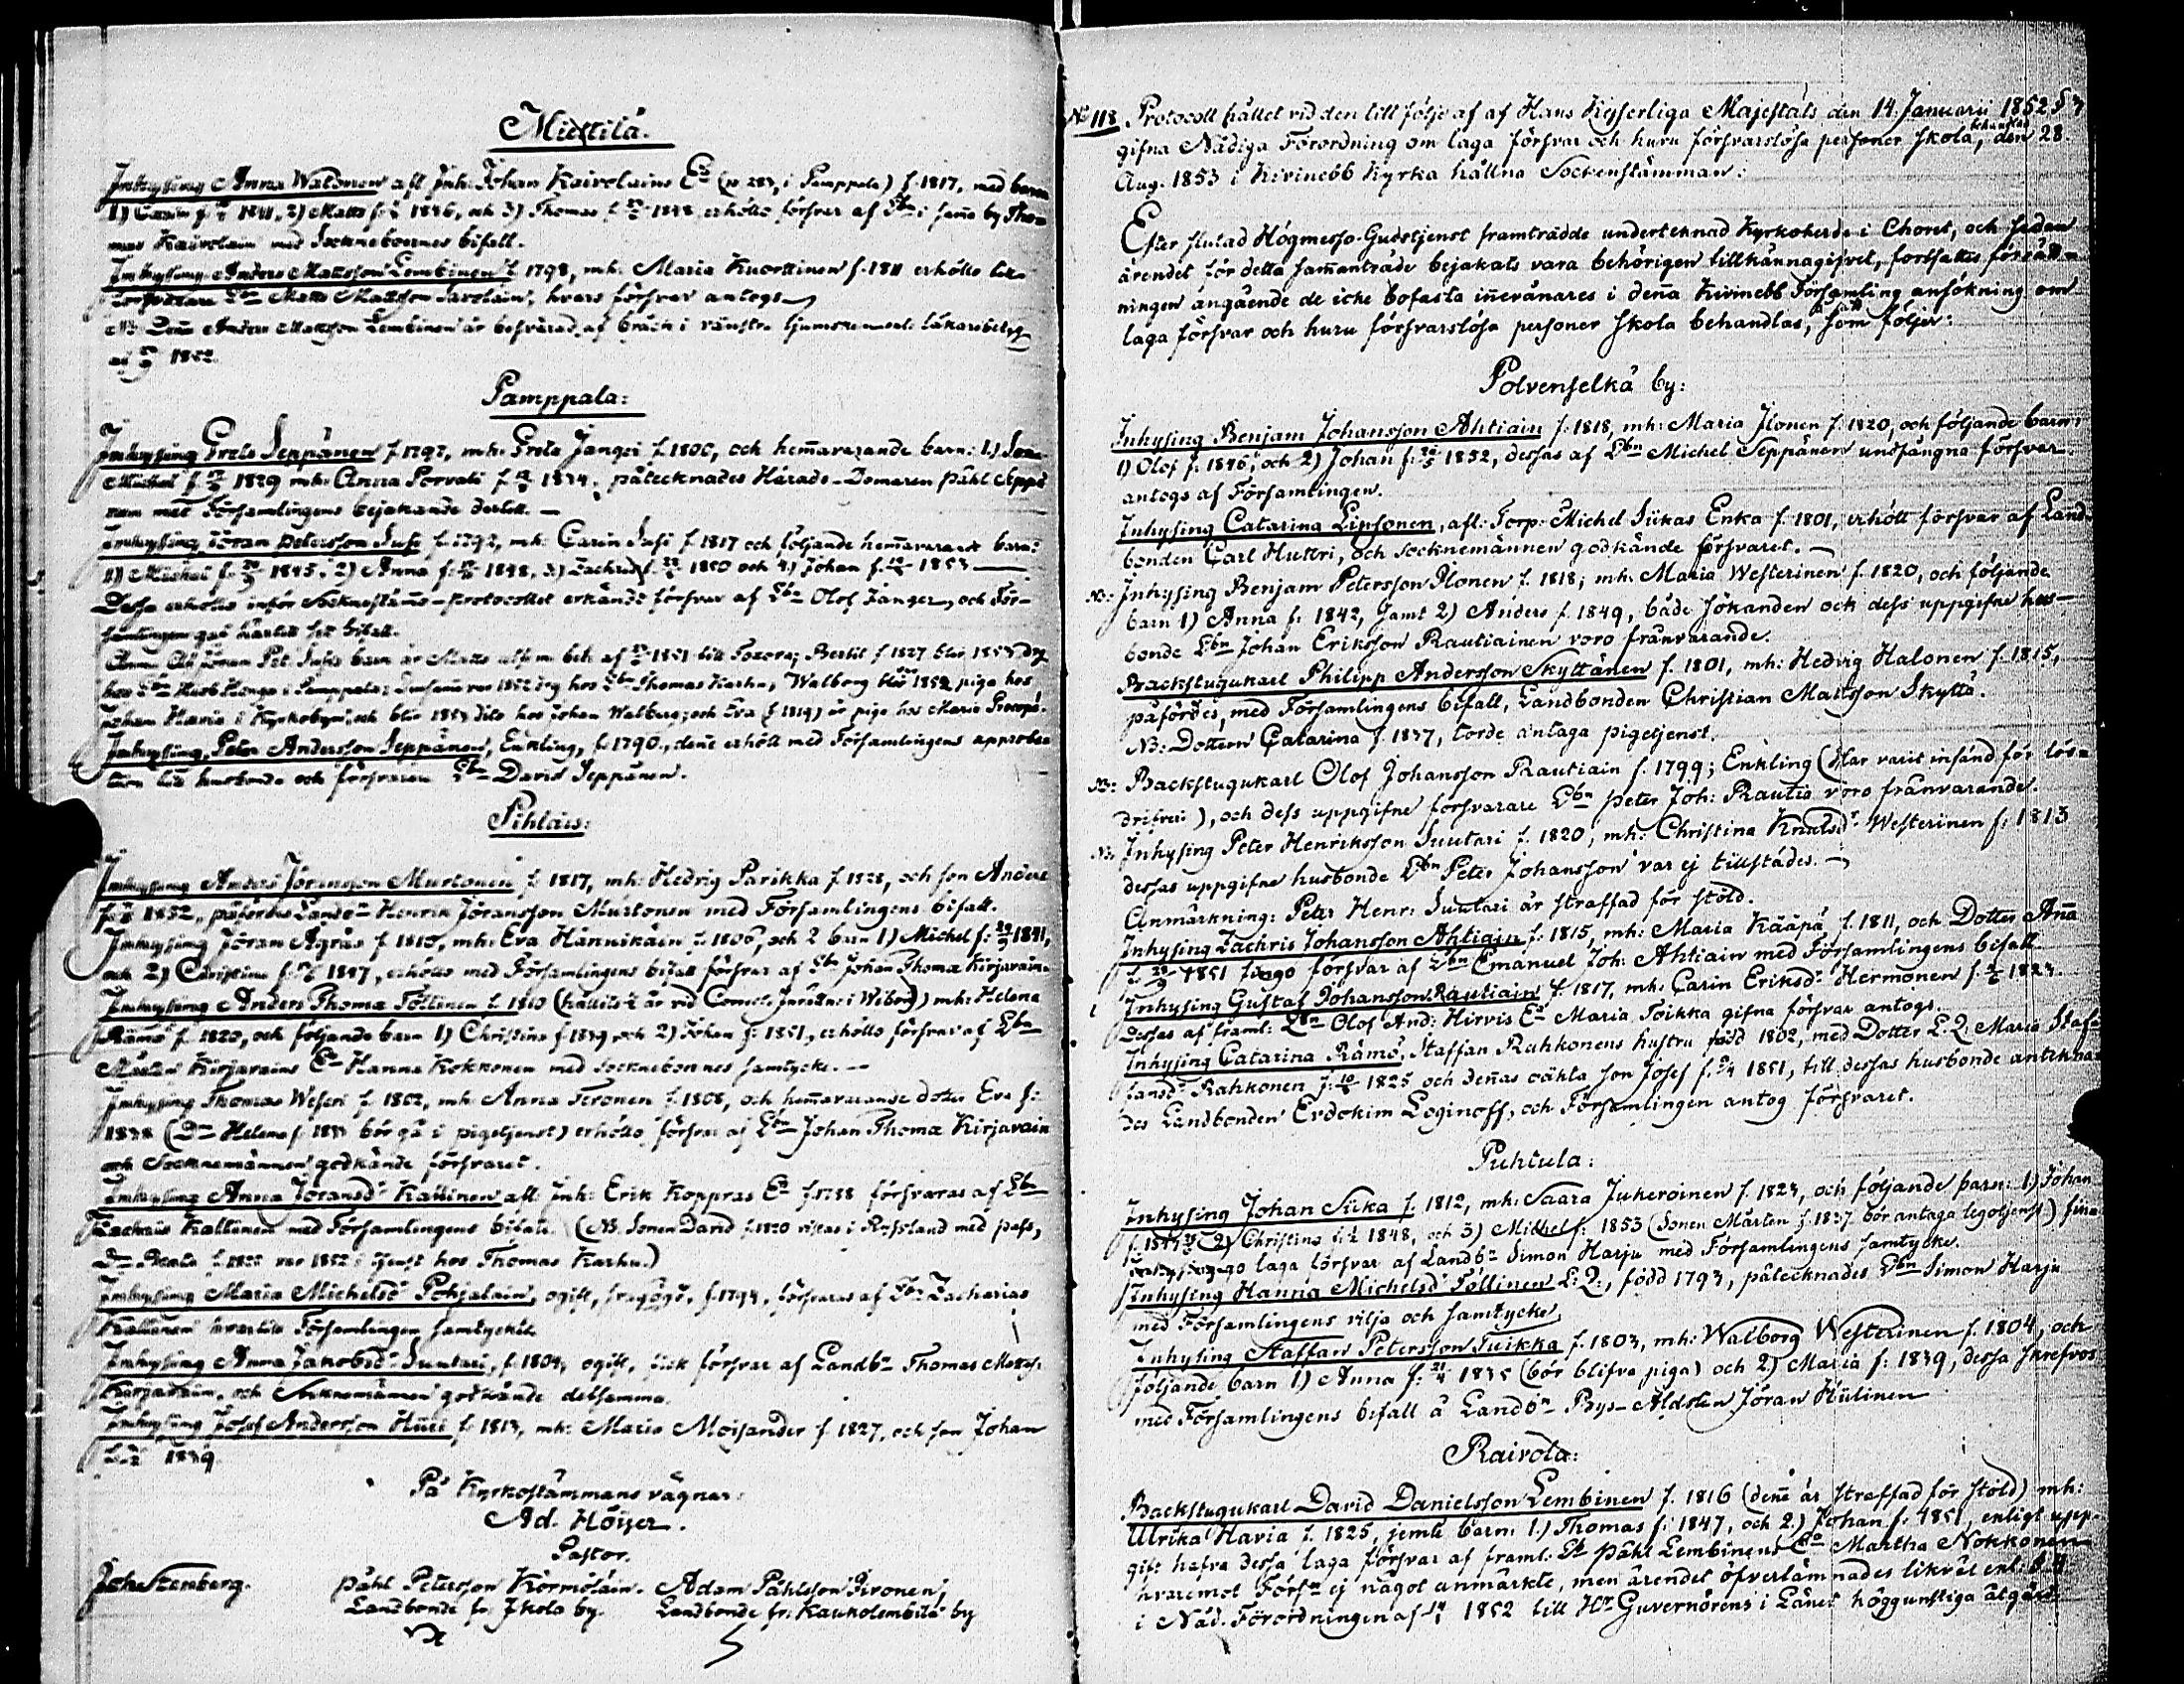 Miettilä.
Inhysing Anna Waldonen afl. Inh: Johan Kaivolains Ea (p. 283, i Pamppala) f. 1817, med barn
1) Carin f. 1841, 2) Matts f. 1846, och 3) Thomas f. 1848, erhöllo försvar af Lbn i samma by Tho-
mas Kaivolain med Socknebornes bifall.
Inhysing Anders Mattsson Lembinen f. 1798, mh. Maria Kuorttinen f. 1811 erhöllo till
försvarare Lbn Matts Mattsson Savolain, hvars försvar antogs
NB Denne Anders Mattsson Lembinen är besvärad af bråck i vänstra ljumsken enl. läkarebetyg
af 1852.
Pamppala:
Inhysing Grels Seppänen f. 1797, mh. Greta Jangri f. 1800, och hemmavarande barn: 1.) Son
Michel f. 1829 mh. Anna Porvali f. 1834. påtecknades Härads-Domaren Påhl Sepp
nen med Församlingens bejakande dertill. —
Inhysing Jöran Petersson Susi f. 1792, mh. Carin Susi f. 1817 och följande hemmavarande barn:
1) Michel f. 1845. 2) Anna f. 1848. 3) Zachris f. 1850 och 4) Johan f. 1853
Dessa erhöllo inför Socknestämmo-protocollet erkändt försvar af Lbn Olof Janger, och För-
samlingen gaf härtill sitt bifall.
hos Lbn i Pamppala; var 1852 drg hos Lbn Thomas Karhu, Walborg blir 1852 piga hos
Johan Hania i Kyrkobyn, och blir 1853 dito hos Johan Walberg; och Eva (f. 1819) är piga hos Maria
Inhysing. Peter Andersson Seppänen, Enkling, f. 1790, denne erhöll med Församlingens approba
tion till husbonde och försvarare Lbn David Seppänen.
Pihlais:
Inhysing Anders Jöransson Murtonen f. 1817, mh. Hedvig Parikka f. 1828, och son Anders
f. 1852, påfördes Landbn Henrik Jöransson Murtonen med Församlingens bifall.
Inhysing Jöran Ägräs f. 1810, mh. Eva Hännikäin f. 1806, och 2 barn 1) Michel f. 29/9 1841,
och 2) Christina f. 1847, erhöllo med Församlingens bifall försvar af Lbn Johan Thomæ Kirjavain.
Inhysing Anders Thomæ Töllinen f. 1810 mh: Helena
Rämö f. 1820, och följande barn 1) Christina f. 1839 och 2) Johan f. 1851, erhöllo försvar af Lbn
Mårten Kirjavains Ea Hanna Kokkonen med socknebornes samtycke. —
Inhysing Thomas Weseri f. 1802, mh. Anna Teronen f. 1808, och hemmavarande dotter Eva f:
1838 (Dn Helena f. 1833 bör gå i pigetjenst) erhöllo försvar af Lbn Johan Thomæ Kirjavain
och Socknemännen godkände försvaret.
Inhysing Anna Jöransdr Kallinen afl. Inh: Erik Koppras Ea f. 1788 försvaras af Lbn
Zachris Kallinen med Församlingens bifall. (NB. Sonen David f. 1820 vistas i Ryssland med pass,
Dn Beata f. 1822 var 1852 i tjenst hos Thomas Karhu.)
Inhysing Maria Michelsdr Pohjalain, ogift, f. 1794, försvaras af Lbn Zacharias
Kallinen hvartill Församlingen samtyckte.
Inhysing Anna Jakobsdr Suutari, f. 1804, ogift, fick försvar af Landbn Thomas Mattss:
Kirjavain, och Socknemännen godkände detsamma.
Inhysing Josef Andersson Hüri f. 1813, mh: Maria Moisander f. 1827, och son Johan
1849.
På Kyrkostämmans vägnar:
Ad. Höijer.
Pastor.
Joh. Stenberg. Påhl Petersson Körmöläin. Adam Påhlsson Pironen,
Landbonde fr. Ikola by. Landbonde fr: Kaukolembilä by
No 118. Protocoll hållet vid den till följe af af Hans Kejserliga Majestäts den 14. Januarii 1852 § 3
gifna Nådiga Förordning om laga försvar och huru försvarslösa personer skola behandlas, den 28.
Aug. 1853 i Kivinebb Kyrka hållna Sockenstämman:
Efter slutad Högmesso-Gudstjenst framträdde underteknad Kyrkoherde i Choret, och sedan
ärendet för detta sammanträde bejakats vara behörigen tillkännagifvet, fortsattes förrätt-
ningen angående de icke bofasta innevånares i denna Kivinebb Församling ansökning om
laga försvar och huru försvarslösa personer skola behandlas, på sätt som följer:
Polvenselkä by:
Inhysing Benjam Johansson Ahtiain f. 1818, mh: Maria Ilonen f. 1820, och följande barn:
1) Olof f. 1846, och 2) Johan f. 20/5 1852, dessas af Lbn Michel Seppänen undfångna försvar
antogs af Församlingen.
Inhysing Catarina Lipsonen, afl. Torp: Michel Siikas Enka f. 1801, erhöll försvar af Land-
bonden Carl Huttri, och socknemännen godkände försvaret.
NB: Inhysing Benjam Petersson Ilonen f. 1818, mh. Maria Westerinen f. 1820, och följande
barn 1) Anna f: 1842, samt 2) Anders f. 1849, både sökanden och dess uppgifne hus-
bonde Lbn Johan Eriksson Rautiainen voro frånvarande.
Backstugukarl Philipp Andersson Skyttänen f. 1801, mh: Hedvig Halonen f. 1815,
påfördes, med Församlingens bifall, Landbonden Christian Matsson Skyttä.
NB: Dottern Catarina f. 1837, torde antaga pigetjenst.
NB: Backstugukarl Olof Johansson Rautiain f. 1799; Enkling (Har varit insänd för lös-
drifveri), och dess uppgifne försvarare Lbn Peter Joh: Rautia voro frånvarande.
NB. Inhysing Peter Henriksson Suutari f. 1820, mh: Christina Knutsdr Westerinen f: 1813
dessas uppgifne husbonde Lbn Peter Johansson var ej tillstädes. —
Anmärkning: Peter Henr: Suutari är straffad för stöld.
Inhysing Zachris Johansson Ahtiain f. 1815, mh: Maria Kääpä f. 1811, och Dotter Anna
f. 29/9 1851 fingo försvar af Lbn Emanuel Joh: Ahtiain med Församlingens bifall
Inhysing Gustaf Johansson Rautiain f. 1817, mh. Carin Eriksdr Hermonen f. 1823.
Dessas af framl: Lbn Olof And: Hirvis Ea Maria Toikka gifna försvar antogs.
Inhysing Catarina Rämö, Staffan Rahkonens hustru född 1802, med Dotter L.Q. Maria Staf-
fansdr Rahkonen f. 1825 och dennas oäkta son Josef f. 1851, till dessas husbonde antekna-
des Landbonden Evdokim Loginoff, och Församlingen antog försvaret.
Puhtula:
Inhysing Johan Siika f. 1812, mh: Saara Jukeroinen f. 1823, och följande barn: 1) Johan
f. 1847 2) Christina f. 1848, och 3) Michel f. 1853 (Sonen Mårten f. 1837 bör antaga legotjenst)
laga försvar af Landbn Simon Harju med Församlingens samtycke.
Inhysing Hanna Michelsdr Töllinen L:Q:, född 1793, påtecknades Lbn Simon Harju
med Församlingens vilja och samtycke.
Inhysing Staffan Petersson Tuikka f. 1803, mh: Walborg Westerinen f. 1804, och
följande barn 1) Anna f: 21/4 1835 (bör blifva piga) och 2) Maria f: 1839, dessa skrefvos
med Församlingens bifall å Landbn Bys-Åldsten Jöran Hülinen
Raivola:
Backstugukarl David Danielsson Lembinen f. 1816 (denne är straffad för stöld) mh:
Ulrika Havia f. 1825, jemte barn: 1.) Thomas f: 1847, och 2.) Johan f: 1851, enligt upp-
gift hafva dessa laga försvar af framl: Lb Påhl Lembinens Ea Martha Nokkonen
hvaremot Församl ej något anmärkte, men ärendet öfverlämnades likväl enl: §. 11
i Nåd. Förordningen af 14/1 1852 till Hr Guvernörens i Länet höggunstiga åtgärd